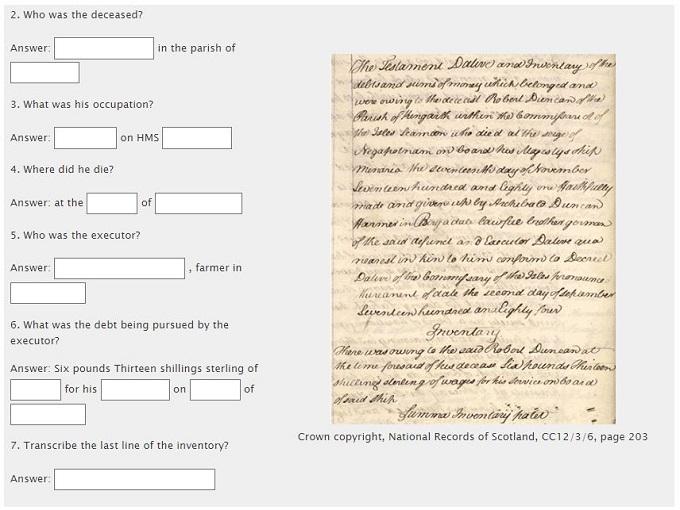 2. Who was the deceased?
Answer: in the parish of
3. What was his occupation?
Answer: on HMS
4. Where did he die?
Answer: at the of
5. Who was the executor?
Answer: , farmer in
6. What was the debt being pursued by the
executor?
Answer: Six pounds Thirteen shillings sterling of
for his on of
7. Transcribe the last line of the inventory?
Answer:
The Testament Dative and Inventary of the
debts and sums of money which belonged and
were owing to the deceast Robert Duncan of the
Parish of Kingarth within the Commissariot of
the Isles Seaman who died at the seige of
Negapatnam on board his Majestys ship
Monarca the seventeenth day of November
Seventeen hundred and Eighty one Faithfully
made and given up by Archibald Duncan
Farmer in Bargadale lawfull brother german
of the said defunct and Executor Dative qua
nearest in kin to him conform to Decreet
Dative of the Commissary of the Isles pronounced
thereanent of date the second day of September
Seventeen hundred and Eighty four
Inventary
There was owing to the said Robert Duncan at
the time foresaid of his decease Six pounds thirteen
shillings sterling of wages for his service on board
of said ship
Summa Inventarij patet
Crown copyright, National Records of Scotland, CC12/3/6, page 203